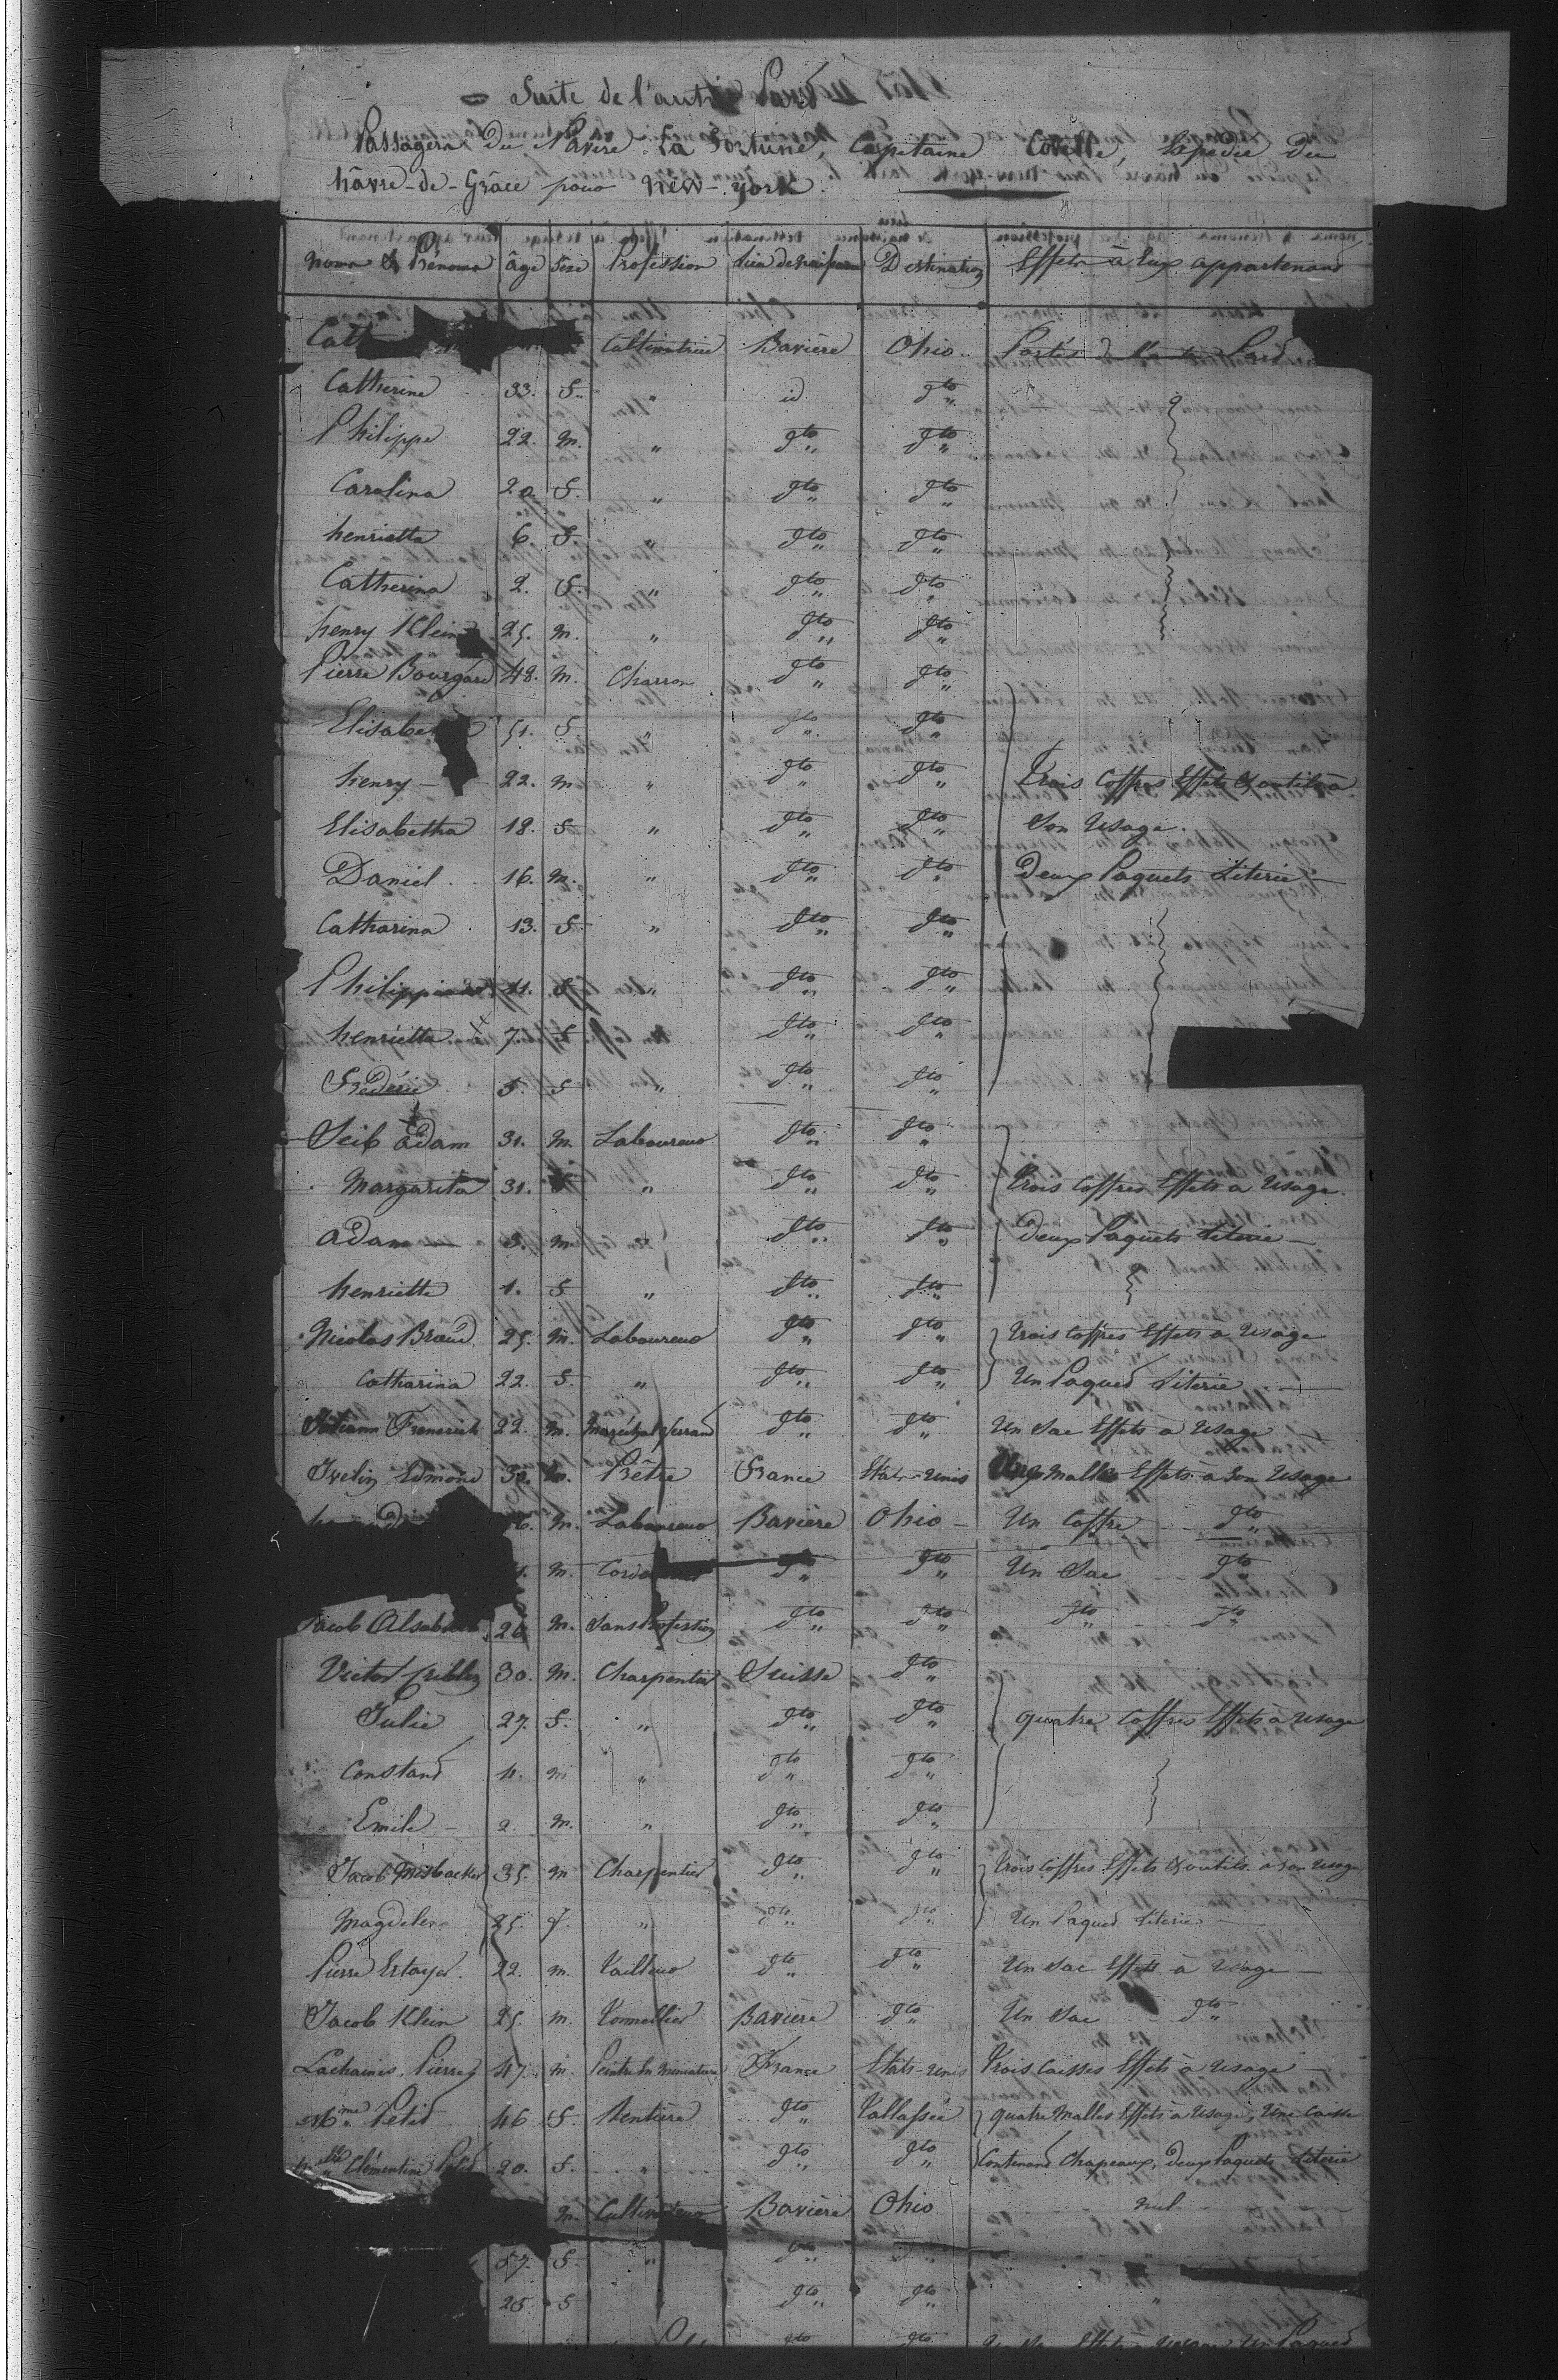 Suite de l'autre Part
Passagers du Navire La Fortune, Capitaine Covelle, Expédié du
hâvre-de-Grâce pour New-york.
Noms & Prénoms âge Sexe Profession lieu de naissance Destination Effets à Eux appartenans
Cath Cultivatrice Bavière Ohio Portés d l'autre Part
Catherine 33. f. " id dto "
Philippe 22. m. " dto " dto "
Carolina 20. f. " dto " dto "
henrietta 6. f. " dto " dto "
Catherina 2. f. " dto " dto "
henry Klein 25. m. " dto " dto "
Pierre Bourgard 48. m. Charron dto " dto "
Elisabe 51. f. " dto " dto "
henry - 22. m. " dto " dto " Trois Coffres Effets & outils à
Elisabetha 18. f. " dto " dto " Son Usage.
Daniel 16. m. " dto " dto " Deux Paquets Literie -
Catharina 13. f. " dto " dto "
Philippina 11. f. " dto " dto "
henrietta 7. f. dto " dto "
Frédéric 5. f " dto " dto "
Seib adam 31. m. Laboureur dto " dto "
Margarita 31. f " dto " dto " Trois Coffres Effets a Usage.
adam - 3. m. " dto " dto " Deux Paquets Literie -
henriette 1. f " dto " dto "
Nicolas Braud 25. m. Laboureur dto " dto " Trois Coffres Effets a Usage
Catharina 22. f. " dto " dto " Un Paquet Literie
Johann 22. m. Maréchal ferrand dto " dto " Un Sac Effets a Usage
Ivelin Edmond m. Prêtre France Etats-Unis Malles Effets à Son Usage
m. Laboureur Bavière Ohio - Un Coffre dto "
m. dto " dto " Un Sac dto "
Jacob 26 m. Sans Profession dto " dto " dto " dto "
Victor Cribles 30. m. Charpentier Suisse dto "
Julie 27. f. " dto " dto " quatre Coffres Effets à Usage
Constant 4. m " dto " dto "
Emile - 2. m. " dto " dto "
Jacob Misbacker 35. m Charpentier dto " dto " Trois Coffres Effets & outils à Son Usage
Magdelene 25. f. " dto " dto " Un Paquet Literie
Pierre Estayer. 22. m. Tailleur dto " dto " Un Sac Effets à Usage -
Jacob Klein 25. m. Tonnellier Bavière dto " Un Sac dto "
Lachaines, Pierre 47. m. Peintre En Miniature France Etats-Unis Trois Caisses Effets à Usage -
Mme Petit 46 f. Rentière dto " Tallassée quatre Malles Effets à Usage, Une Caisse
Melle Clémentine Petit 20. f. " dto " dto " Contenant Chapeaux, Deux Paquets Literie
m. Cultivateur Bavière Ohio nul
57. f. " dto " dto "
25 f dto " dto " "
dto dto Effets a Usage Un Paquet